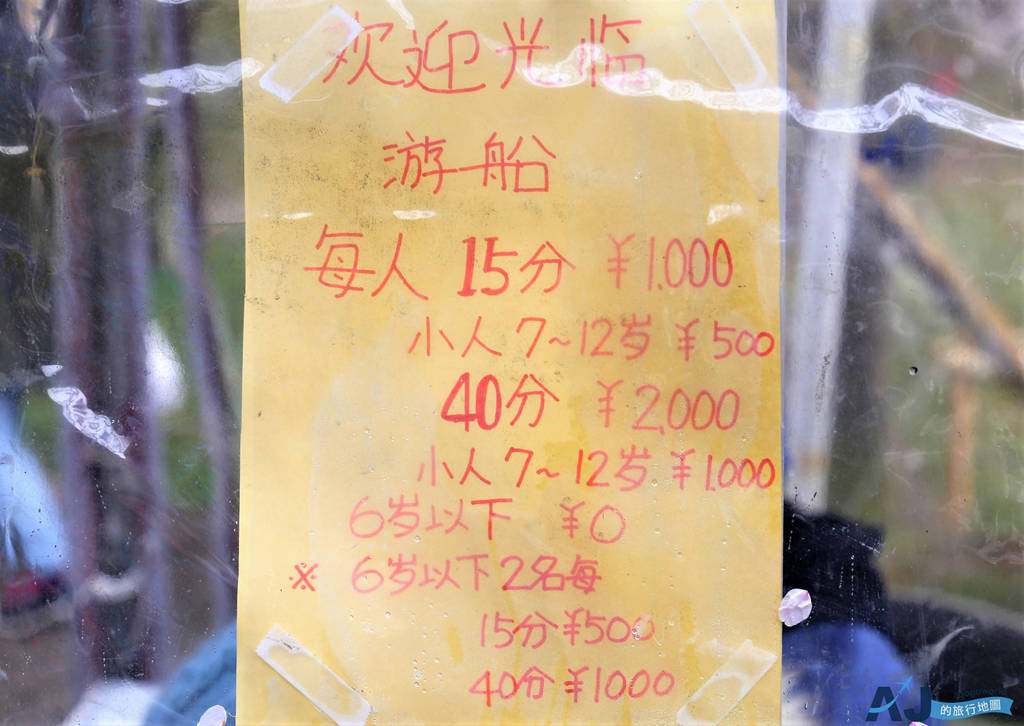 欢迎光临
游船
每人 15分 ¥1.000
小人 7~12岁 ¥500
40分 ¥2,000
小人 7~12岁 ¥1.000
6岁以下 ¥0
※ 6岁以下2名每
15分¥500
40分¥1000
AJ的旅行地圖